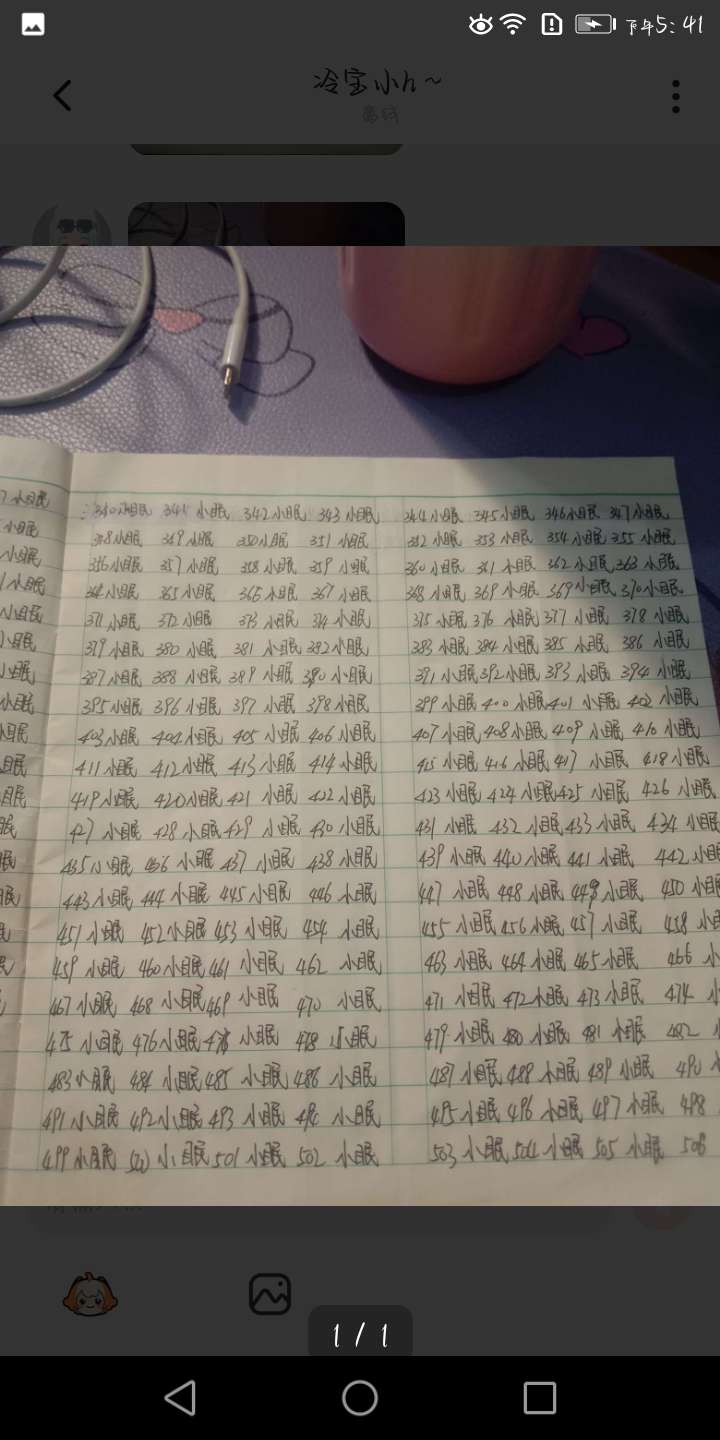 下午5:41
冷宝小h~
离线
7小眠 340小眠 341小眠 342小眠 343小眠 344小眠 345小眠 346小眠 347小眠
小眠 348小眠 349小眠 350小眠 351小眠 352小眠 353小眠 354小眠 355小眠
小眠 356小眠 357小眠 358小眠 359小眠 360小眠 361小眠 362小眠 363小眠
小眠 364小眠 365小眠 366小眠 367小眠 368小眠 369小眠 369小眠 370小眠
小眠 371小眠 372小眠 373小眠 374小眠 375小眠 376小眠 377小眠 378小眠
小眠 379小眠 380小眠 381小眠 382小眠 383小眠 384小眠 385小眠 386小眠
小眠 387小眠 388小眠 389小眠 390小眠 391小眠 392小眠 393小眠 394小眠
小眠 395小眠 396小眠 397小眠 398小眠 399小眠 400小眠 401小眠 402小眠
小眠 403小眠 404小眠 405小眠 406小眠 407小眠 408小眠 409小眠 410小眠
眠 411小眠 412小眠 413小眠 414小眠 415小眠 416小眠 417小眠 418小眠
眠 419小眠 420小眠 421小眠 422小眠 423小眠 424小眠 425小眠 426小眠
眠 427小眠 428小眠 429小眠 430小眠 431小眠 432小眠 433小眠 434小眠
眠 435小眠 436小眠 437小眠 438小眠 439小眠 440小眠 441小眠 442小眠
眠 443小眠 444小眠 445小眠 446小眠 447小眠 448小眠 449小眠 450小眠
451小眠 452小眠 453小眠 454小眠 455小眠 456小眠 457小眠 458小眠
459小眠 460小眠 461小眠 462小眠 463小眠 464小眠 465小眠 466小
467小眠 468小眠 469小眠 470小眠 471小眠 472小眠 473小眠 474小
475小眠 476小眠 477小眠 478小眠 479小眠 480小眠 481小眠 482小
483小眠 484小眠 485小眠 486小眠 487小眠 488小眠 489小眠 490小
491小眠 492小眠 493小眠 494小眠 495小眠 496小眠 497小眠 498
499小眠 500小眠 501小眠 502小眠 503小眠 504小眠 505小眠 506
1 / 1